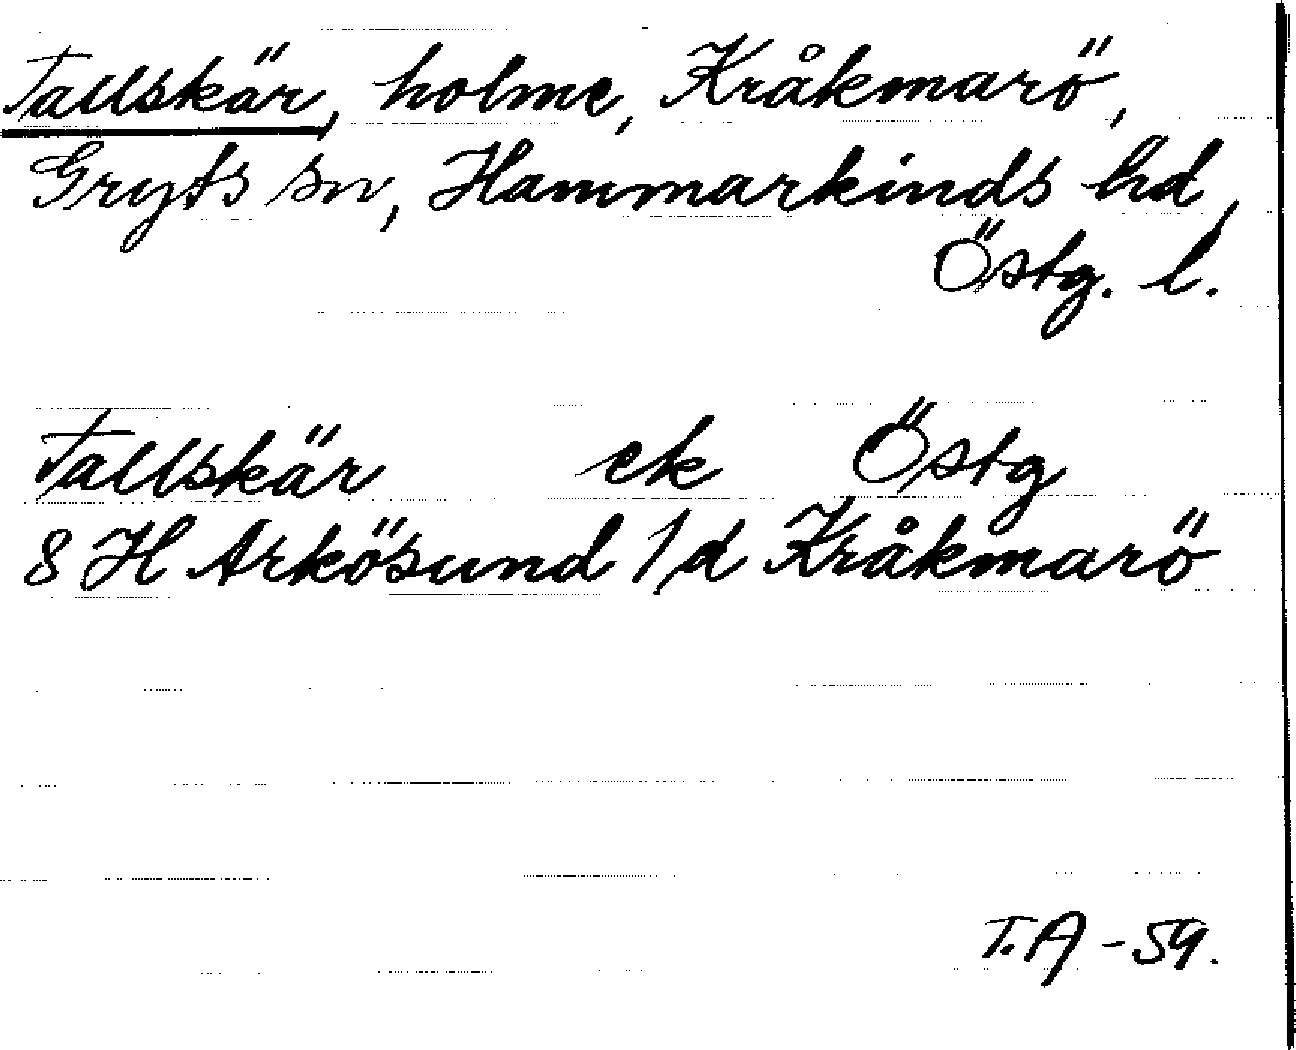 Tallskär, holme, Kråkmarö,
Gryts sn, Hammarkinds hd,
Östg. l.
Tallskär ek Östg
8 H Arkösund 1/d Kråkmarö
T.A -59.